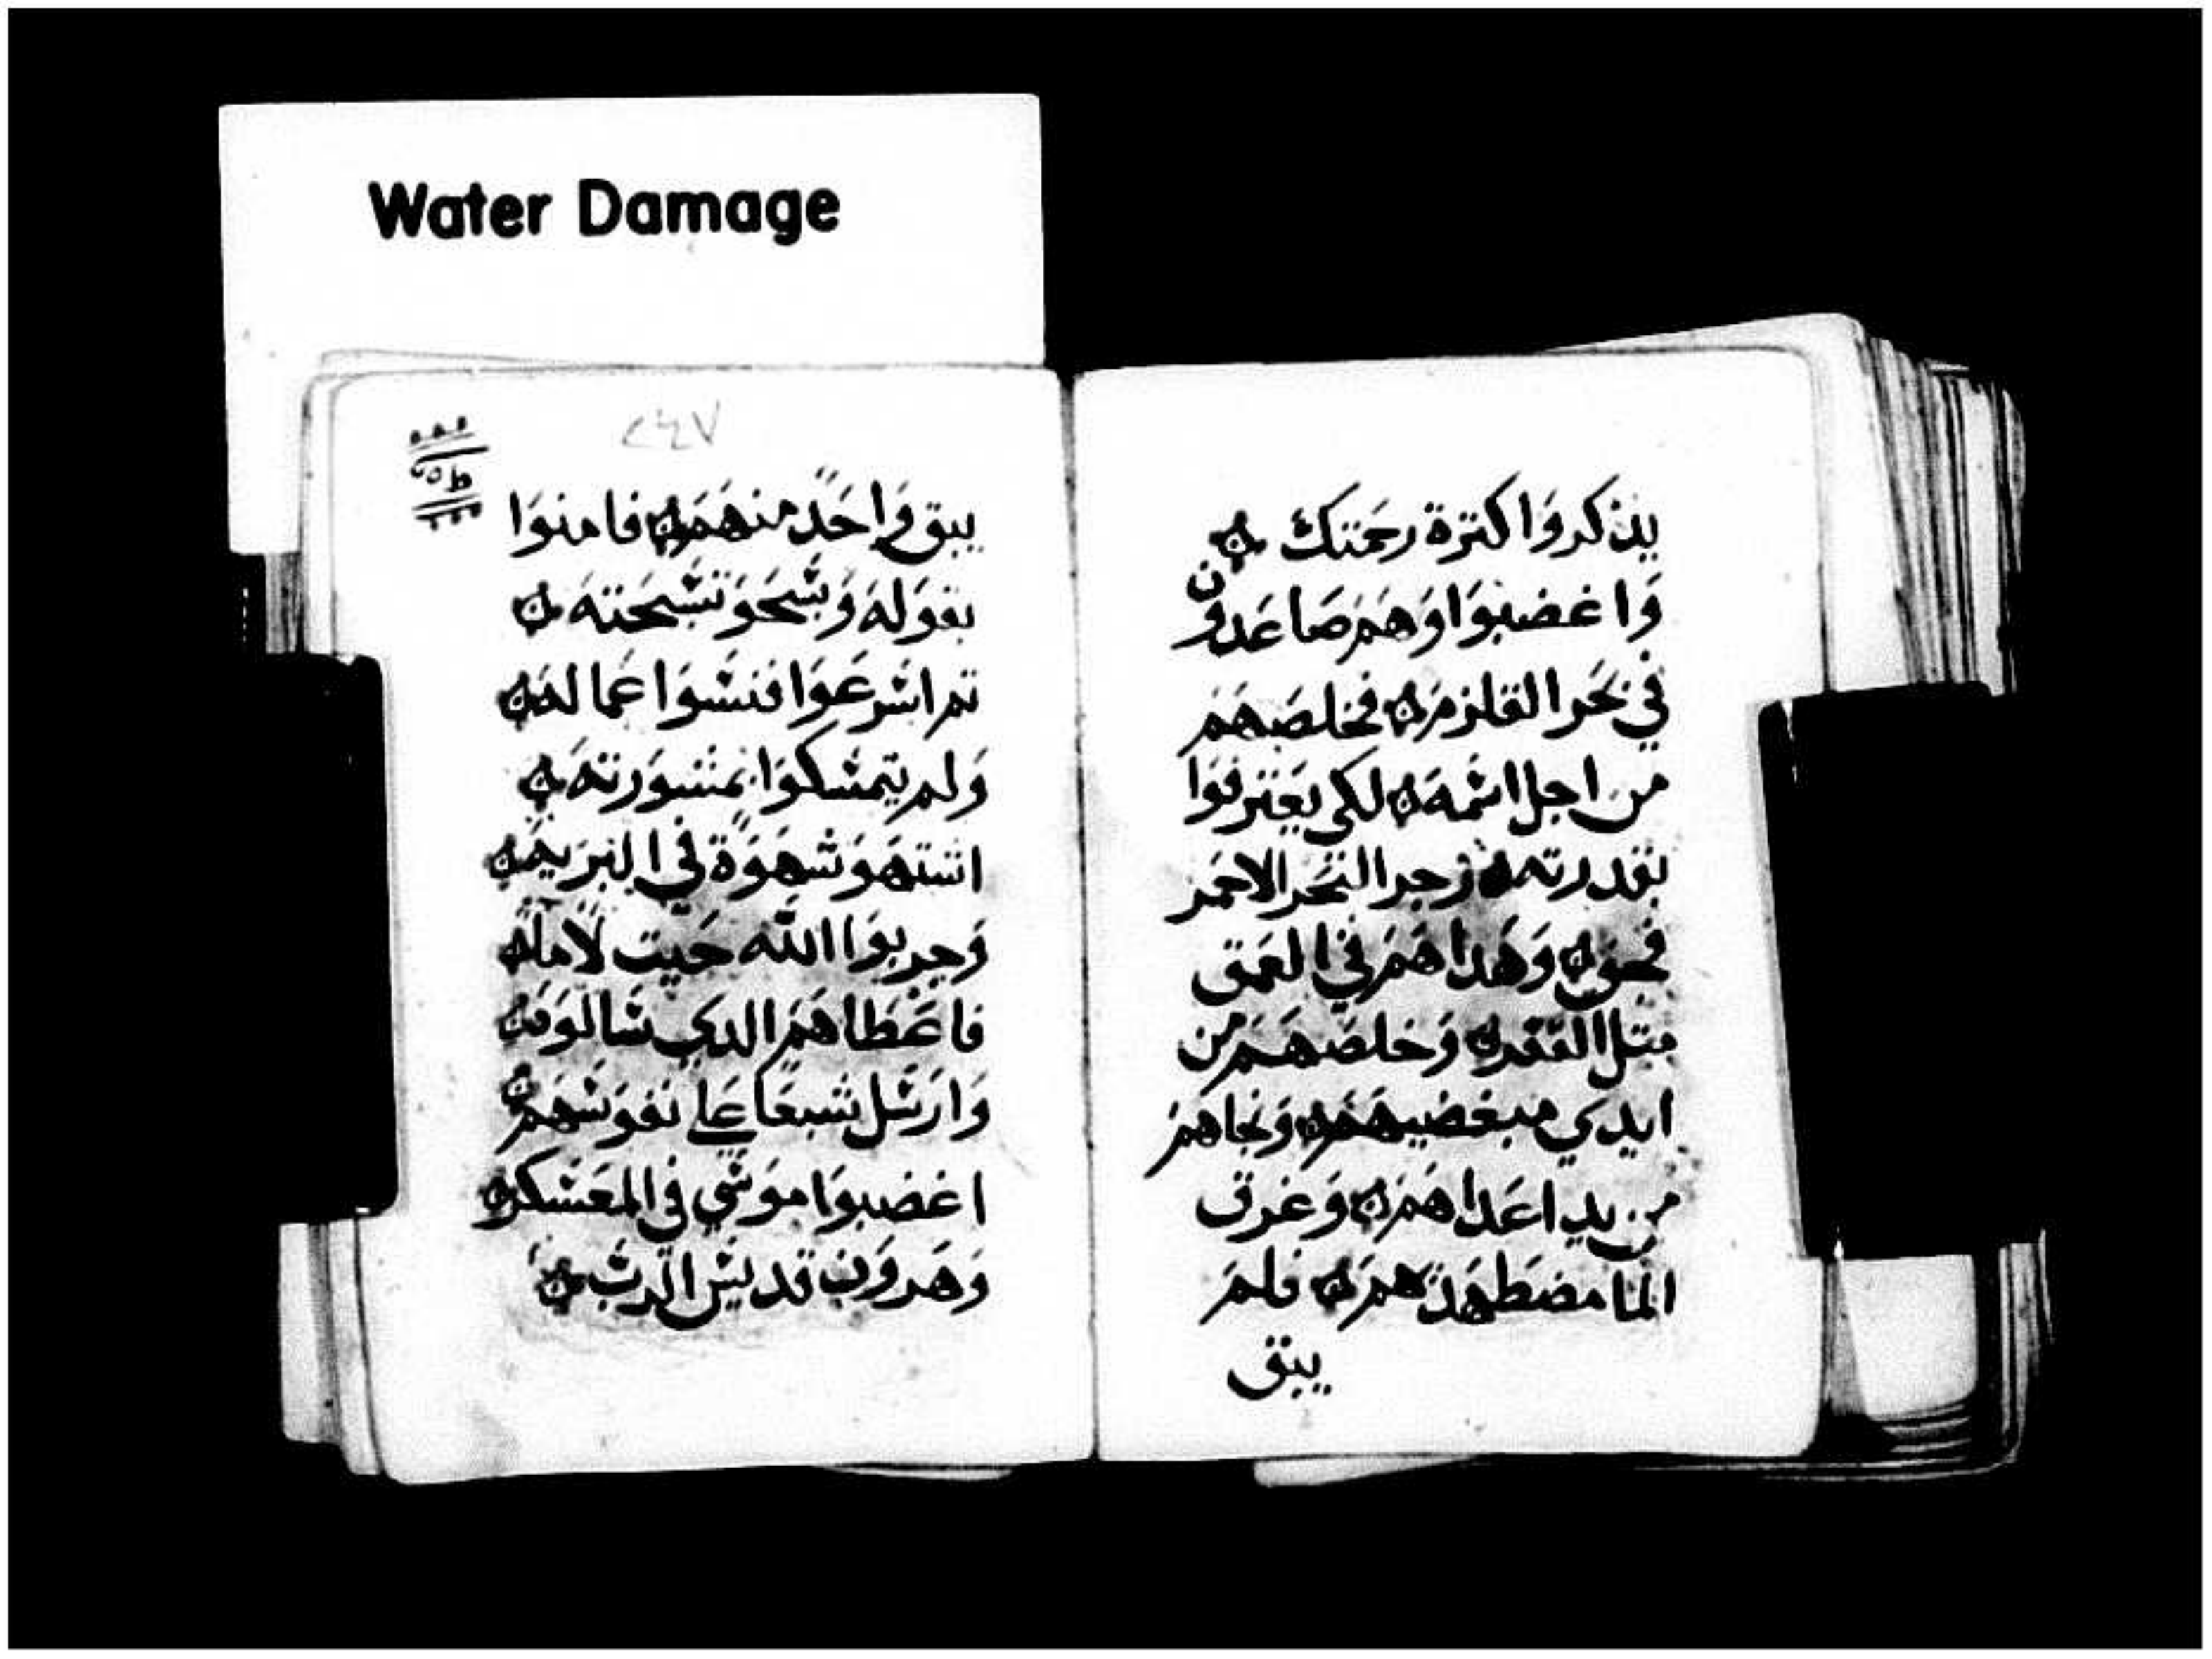 Water Damage
يذكروا كترة رحمتك
واغضبوا وهم صاعدون
في بحر القلزم فخلصهم
من اجل اسمه لكي يعترفوا
بقدرته زجر البحر الاحمر
وهداهم في العمق
متل القفر وخلصهم من
ايدي مبغضيهم ونجاهم
من يد اعداهم وغرق
الما مضطهديهم فلم
يبق
٢٤٧
يبق واحد منهم فامنوا
بقوله وسبحو تسبحته
تم اسرعوا فنسوا عماله
ولم يتمسكوا بمشورته
اشتهو شهوة في البريه
وجربوا الله حيت لاما
فاعطاهم الدي سالوه
وارسل شبعا علي نفوسهم
اغضبوا موسي في المعسكر
وهرون قديس الرب